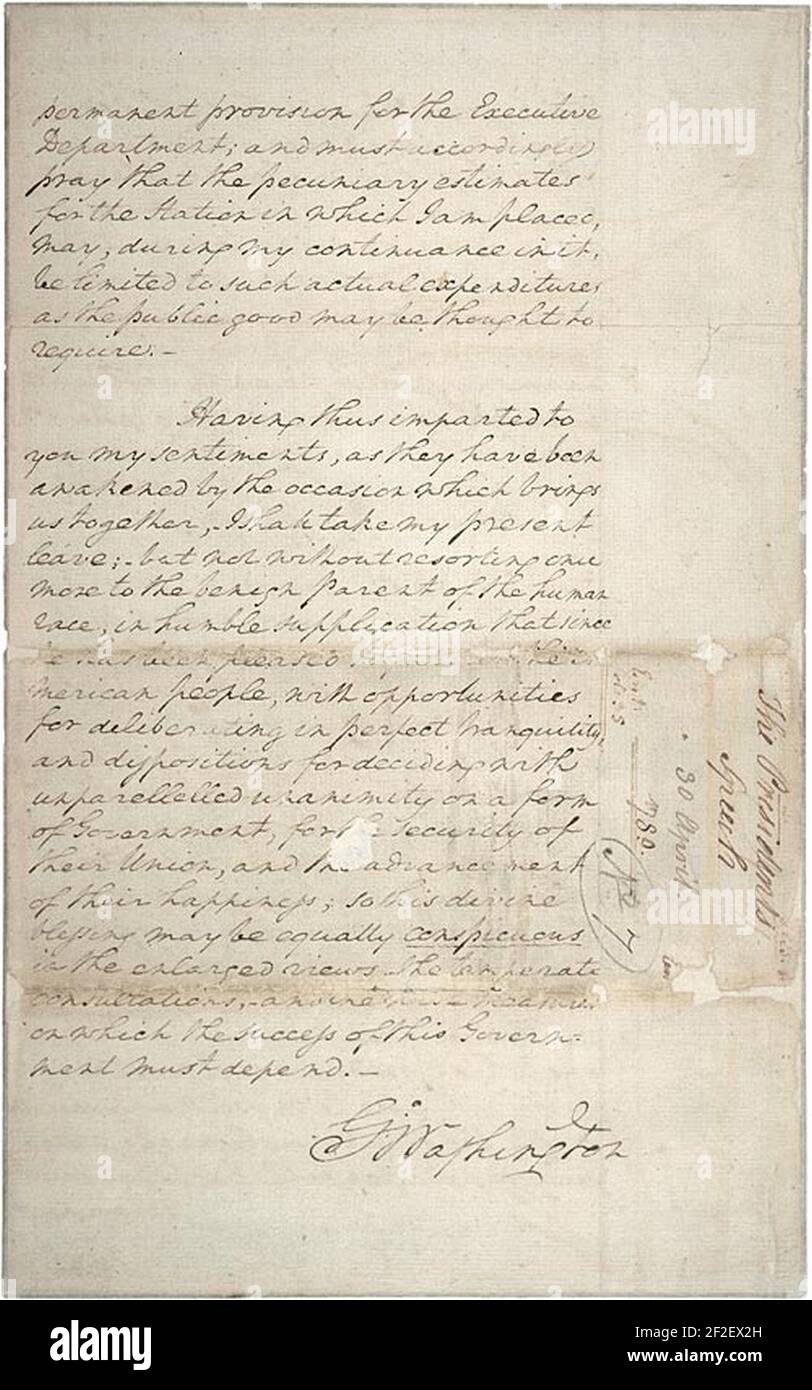 permanent provision for the Executive
Department; and must accordingly
pray that the pecuniary estimates
for the Station in which I am placed,
may, during my continuance in it,
be limited to such actual expenditures
as the public good may be thought to
require. –
Having thus imparted to
you my sentiments, as they have been
awakened by the occasion which brings
us together, – I shall take my present
leave; – but not without resorting once
more to the benign Parent of the human
race, in humble supplication that since
he has been pleased the A
merican people, with opportunities
for deliberating in perfect tranquility,
and dispositions for deciding with
unparellelled unanimity on a form
of Government, for the security of
their Union, and the advancement
of their happiness; so his divine
blessing may be equally conspicuous
in the enlarged views the temperate
consultations, – and the measures
on which the success of this Govern=
ment must depend. –
G. Washington
The Presidents
Speech
30 April
789.
No 7
alamy
Image ID: 2F2EX2H
www.alamy.com